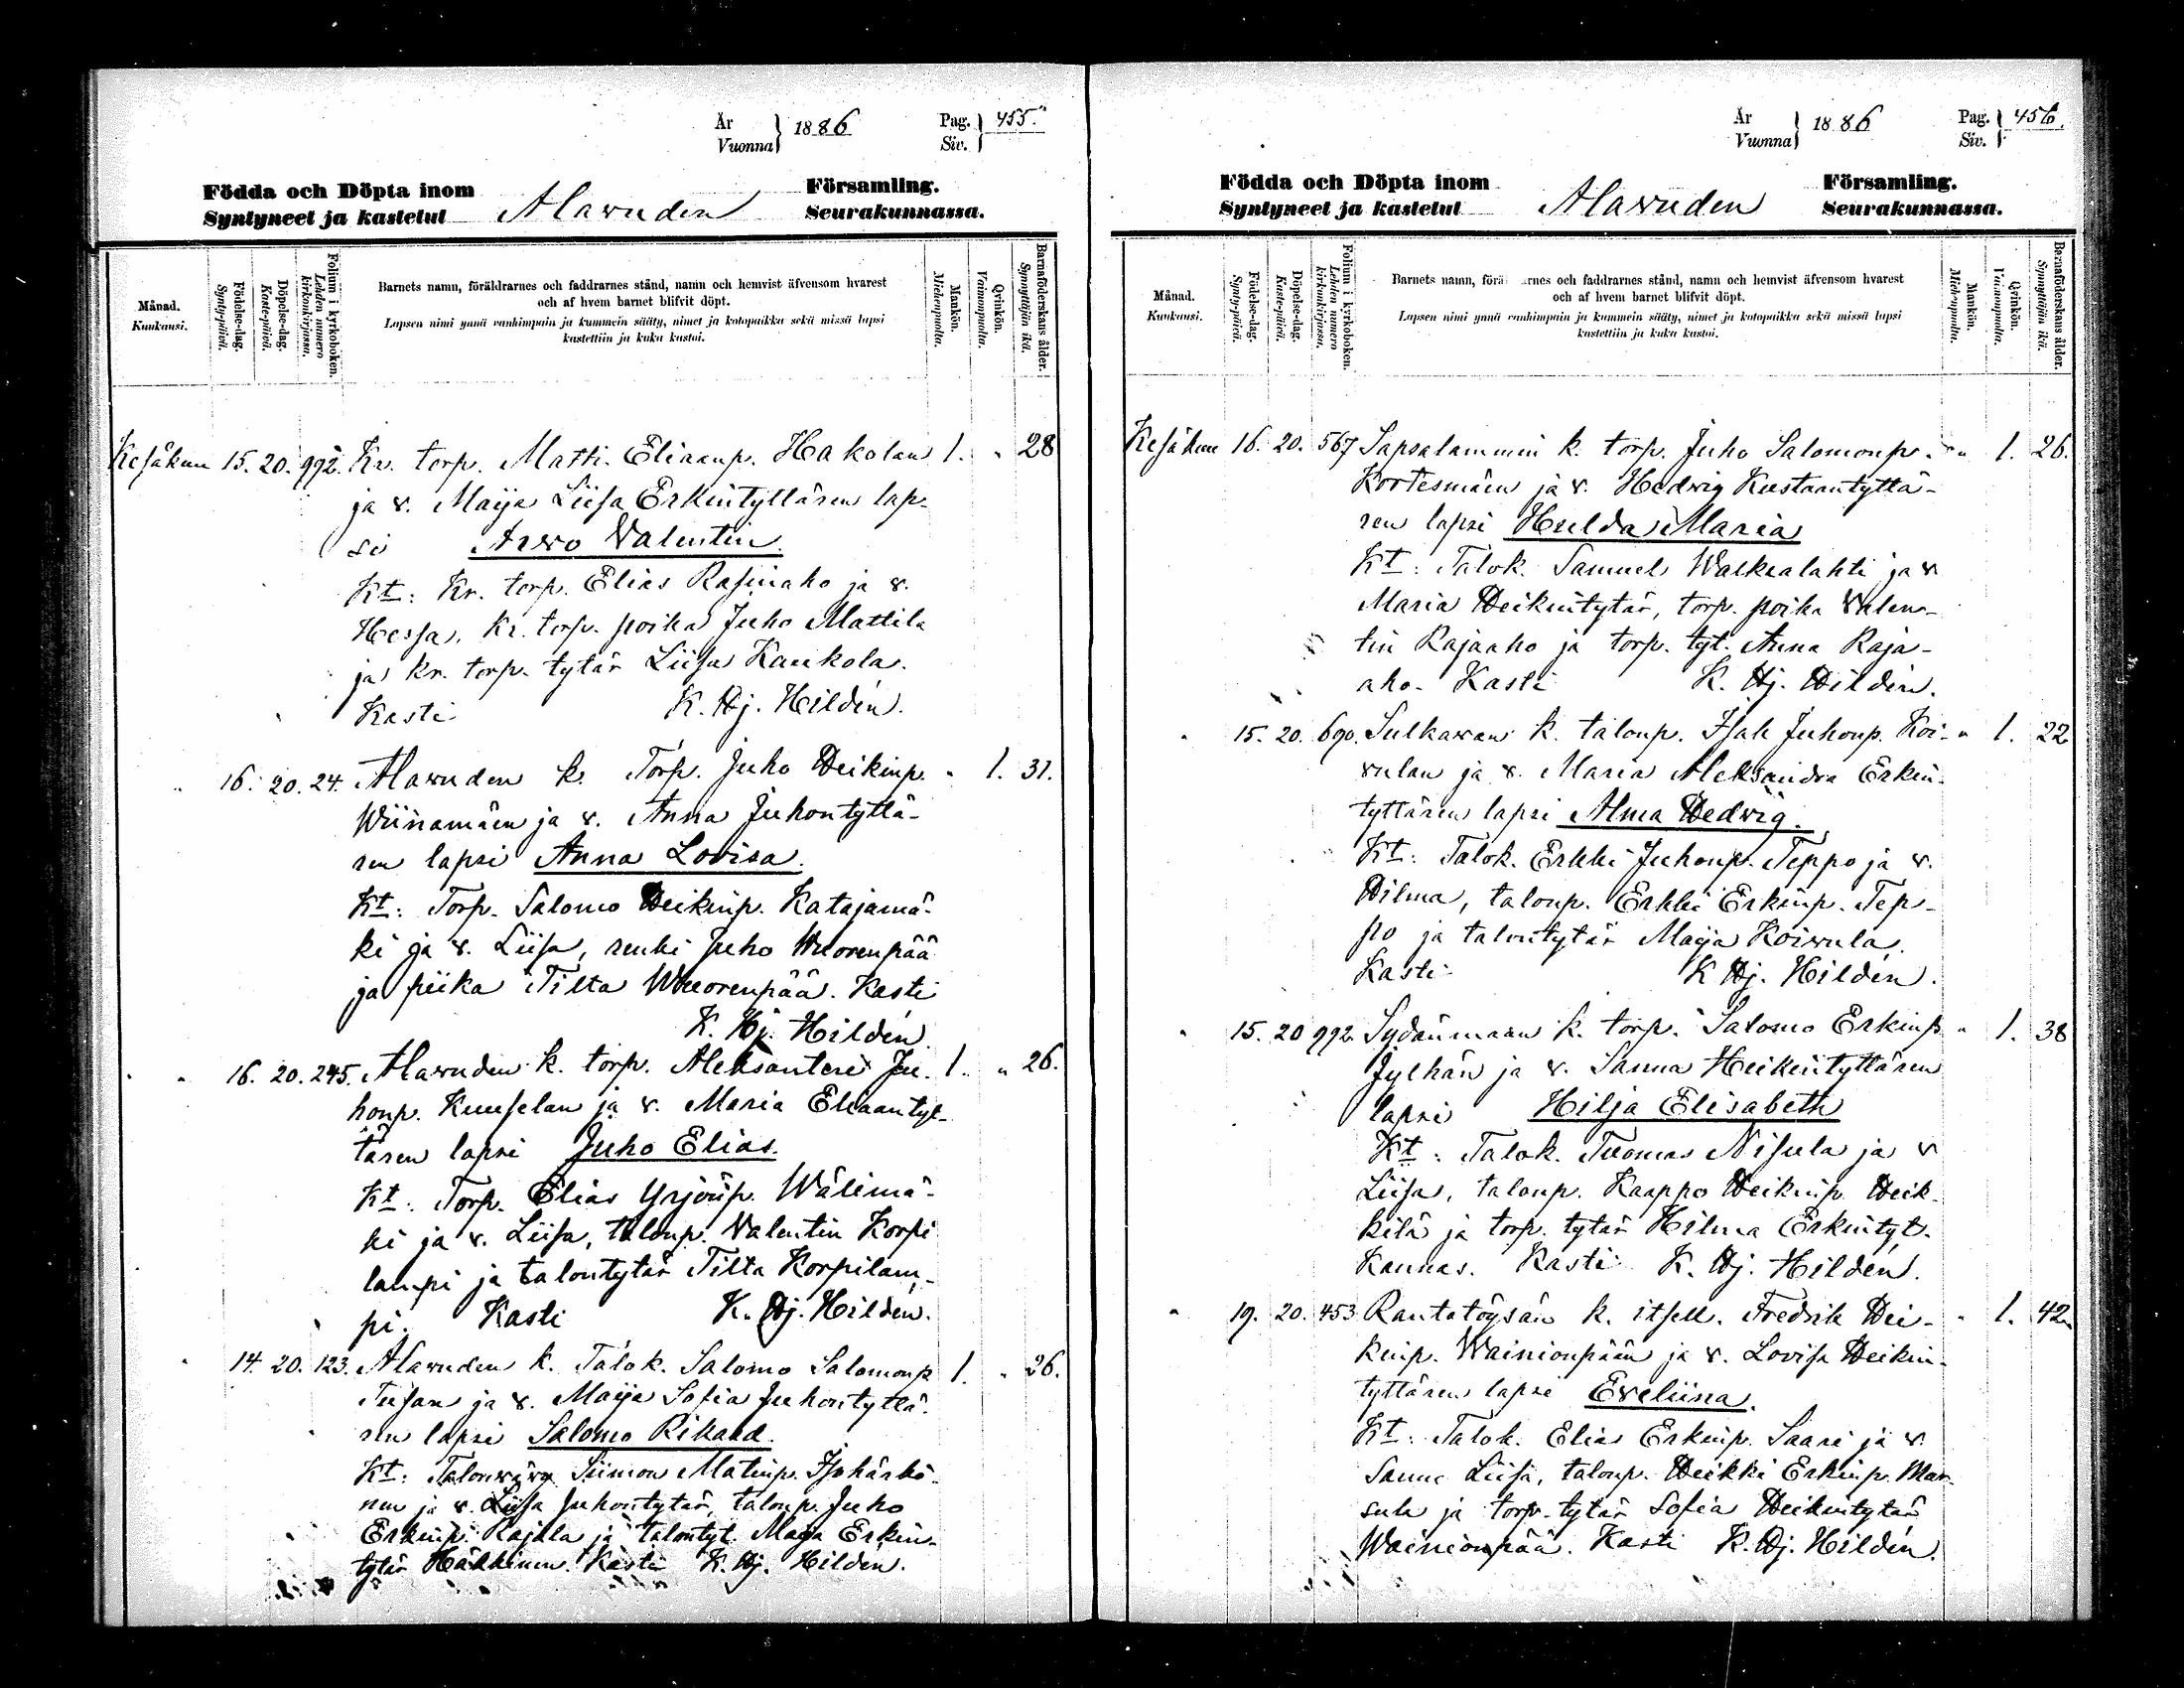 År
Vuonna } 1886
Pag.
Siv. } 455.
Födda och Döpta inom
Syntyneet ja kastetut Alavuden
Församling.
Seurakunnassa.
Månad.
Kuukausi.
Födelse-dag.
Synty-päivä.
Döpelse-dag.
Kaste-päivä.
Folium i kyrkoboken.
Lehden numero kirkonkirjassa.
Barnets namn, föräldrarnes och faddrarnes stånd, namn och hemvist äfvensom hvarest
och af hvem barnet blifvit döpt.
Lapsen nimi ynnä vanhimpain ja kummein sääty, nimet ja kotopaikka sekä missä lapsi
kastettiin ja kuka kastoi.
Mankön.
Miehenpuolta.
Qvinkön.
Vaimonpuolta.
Barnaföderskans ålder.
Synnyttäjän ikä.
Kesäkuu 15. 20. 992. Kr. torp. Matti Eliaanp. Hakolan 1. " 28
ja v. Maija Liisa Erkintyttären lap-
si Arvo Valentin.
Kt: Kr. torp. Elias Rasinaho ja v.
Hessa, kr. torp. poika Juho Mattila
ja kr. torp. tytär Liisa Kaukola.
Kasti K. Hj. Hildén.
" 16. 20. 24. Alavuden k. Torp. Juho Heikinp. " 1. 31.
Wiinamäen ja v. Anna Juhontyttä-
ren lapsi Anna Lovisa.
Kt: Torp. Salomo Heikinp. Katajamä-
ki ja v. Liisa, renki Juho Wuorenpää
ja piika Tilta Wuorenpää. Kasti
K. Hj. Hildén.
" 16. 20. 245. Alavuden k. torp. Aleksanteri Ju- 1. " 26.
honp. Kuuselan ja v. Maria Eliaantyt-
tären lapsi Juho Elias.
Kt: Torp. Elias Yrjönp. Wälimä-
ki ja v. Liisa, talonp. Valentin Korpi
lampi ja talontytär Tilta Korpilam-
pi. Kasti K. Hj. Hildén.
" 14. 20. 123. Alavuden k. Talok. Salomo Salomonp. 1. " 26.
Tusan ja v. Maija Sofia Juhontyttä-
ren lapsi Salomo Rikard.
Kt: Talonvävy Siimon Matinp. Isohärkö-
nen ja v. Liisa Juhontytär, talonp. Juho
Erkinp. Rajala ja talontyt. Maija Erkin-
tytär Häkkinen. Kasti K. Hj. Hildén.
År
Vuonna } 1886
Pag.
Siv. } 456.
Födda och Döpta inom
Syntyneet ja kastetut Alavuden
Församling.
Seurakunnassa.
Månad.
Kuukausi.
Födelse-dag.
Synty-päivä.
Döpelse-dag.
Kaste-päivä.
Folium i kyrkoboken.
Lehden numero kirkonkirjassa.
Barnets namn, förä rnes och faddrarnes stånd, namn och hemvist äfvensom hvarest
och af hvem barnet blifvit döpt.
Lapsen nimi ynnä vanhimpain ja kummein sääty, nimet ja kotopaikka sekä missä lapsi
kastettiin ja kuka kastoi.
Mankön.
Miehenpuolta.
Qvinkön.
Vaimonpuolta.
Barnaföderskans ålder.
Synnyttäjän ikä.
Kesäkuu 16. 20. 567 Sapsalammin k. torp. Juho Salomonpr. " 1. 26.
Kortesmäen ja v. Hedvig Kustaantyttä-
ren lapsi Hulda Maria
Kt: Talok. Samuel Waskealahti ja v
Maria Heikintytär, torp. poika Valen-
tin Rajaaho ja torp. tyt. Anna Raja-
aho. Kasti K. Hj. Hildén.
" 15. 20. 690. Sulkavan k. talonp. Isak Juhonp. Koi- " 1. 22
vulan ja v. Maria Aleksandra Erkin-
tyttären lapsi Alma Hedvig.
Kt: Talok. Erkki Juhonp. Teppo ja v.
Hilma, talonp. Erkki Erkinp. Tep-
po ja talontytär Maija Koivula.
Kasti K Hj. Hildén.
" 15. 20 992. Sydänmaan k. torp. Salomo Erkinp. " 1. 38
Jylhän ja v. Sanna Heikintyttären
lapsi Hilja Elisabeth
Kt: Talok. Tuomas Nisula ja v
Liisa, talonp. Kaappo Heikinp. Heik-
kilä ja torp. tytär Hilma Erkintyt.
Kannas. Kasti K. Hj. Hildén.
" 19. 20. 453 Rantatöysän k. itsell. Fredrik Hei- " 1. 42.
kinp. Wainionpään ja v. Lovisa Heikin-
tyttären lapsi Eveliina.
Kt: Talok. Elias Erkinp. Saari ja v.
Sanna Liisa, talonp. Heikki Erkinp. Mar-
sula ja torp. tytär Sofia Heikintytär
Wainionpää. Kasti K. Hj. Hildén.